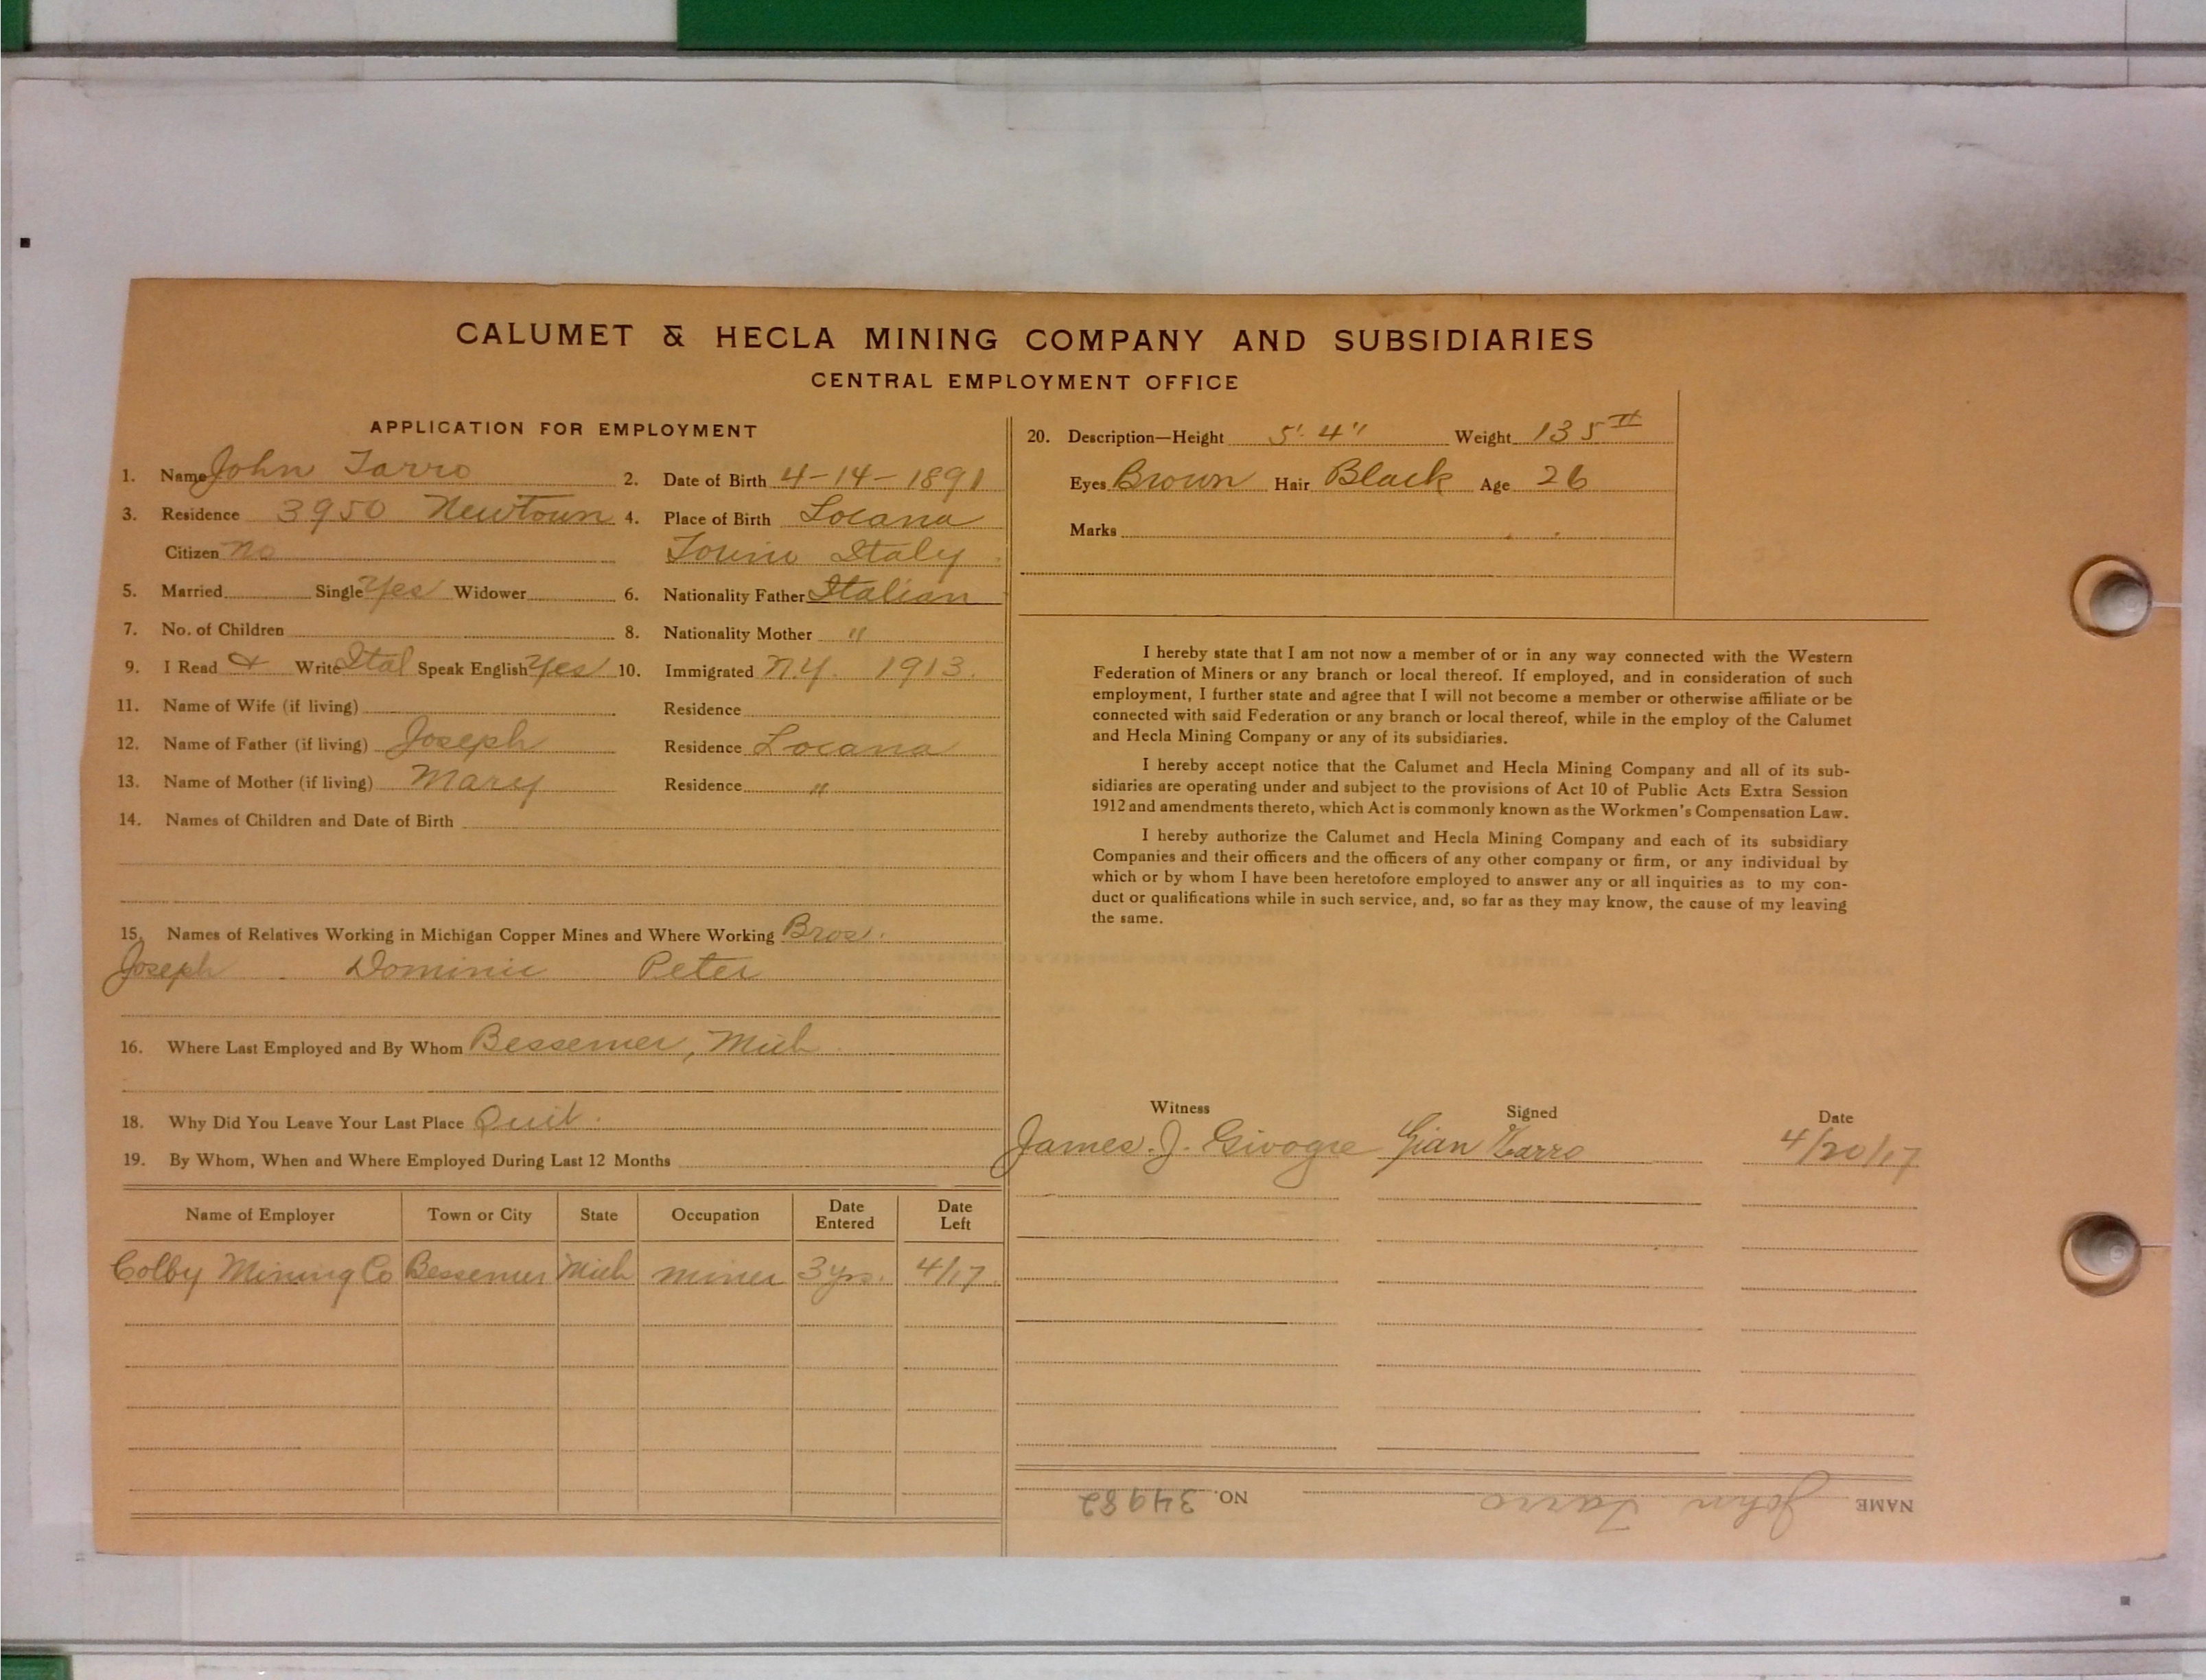 CALUMET & HECLA MINING COMPANY AND SUBSIDIARIES
CENTRAL EMPLOYMENT OFFICE
APPLICATION FOR EMPLOYMENT
1. Name John Tarro 2. Date of Birth 4-14-1891
3. Residence 3950 Newtown 4. Place of Birth Locana
Citizen No Tourin Italy
5. Married Single Yes Widower 6. Nationality Father Italian
7. No. of Children 8. Nationality Mother "
9. I Read & Write Ital Speak English Yes 10. Immigrated N.Y. 1913.
11. Name of Wife (if living) Residence
12. Name of Father (if living) Joseph Residence Locana
13. Name of Mother (if living) Mary Residence "
14. Names of Children and Date of Birth
15. Names of Relatives Working in Michigan Copper Mines and Where Working Bros.
Joseph Dominic Peter
16. Where Last Employed and By Whom Bessemer, Mich
18. Why Did You Leave Your Last Place Quit.
19. By Whom, When and Where Employed During Last 12 Months
Name of Employer Town or City State Occupation Date Entered Date Left
Colby Mining Co Bessemer Mich miner 3 yrs. 4/17.
20. Description—Height 5' 4" Weight 135 #
Eyes Brown Hair Black Age 26
Marks
I hereby state that I am not now a member of or in any way connected with the Western
Federation of Miners or any branch or local thereof. If employed, and in consideration of such
employment, I further state and agree that I will not become a member or otherwise affiliate or be
connected with said Federation or any branch or local thereof, while in the employ of the Calumet
and Hecla Mining Company or any of its subsidiaries.
I hereby accept notice that the Calumet and Hecla Mining Company and all of its sub-
sidiaries are operating under and subject to the provisions of Act 10 of Public Acts Extra Session
1912 and amendments thereto, which Act is commonly known as the Workmen's Compensation Law.
I hereby authorize the Calumet and Hecla Mining Company and each of its subsidiary
Companies and their officers and the officers of any other company or firm, or any individual by
which or by whom I have been heretofore employed to answer any or all inquiries as to my con-
duct or qualifications while in such service, and, so far as they may know, the cause of my leaving
the same.
Witness Signed Date
James. J. Givogre Gian Tarro 4/20/17
NAME John Tarro NO. 34982